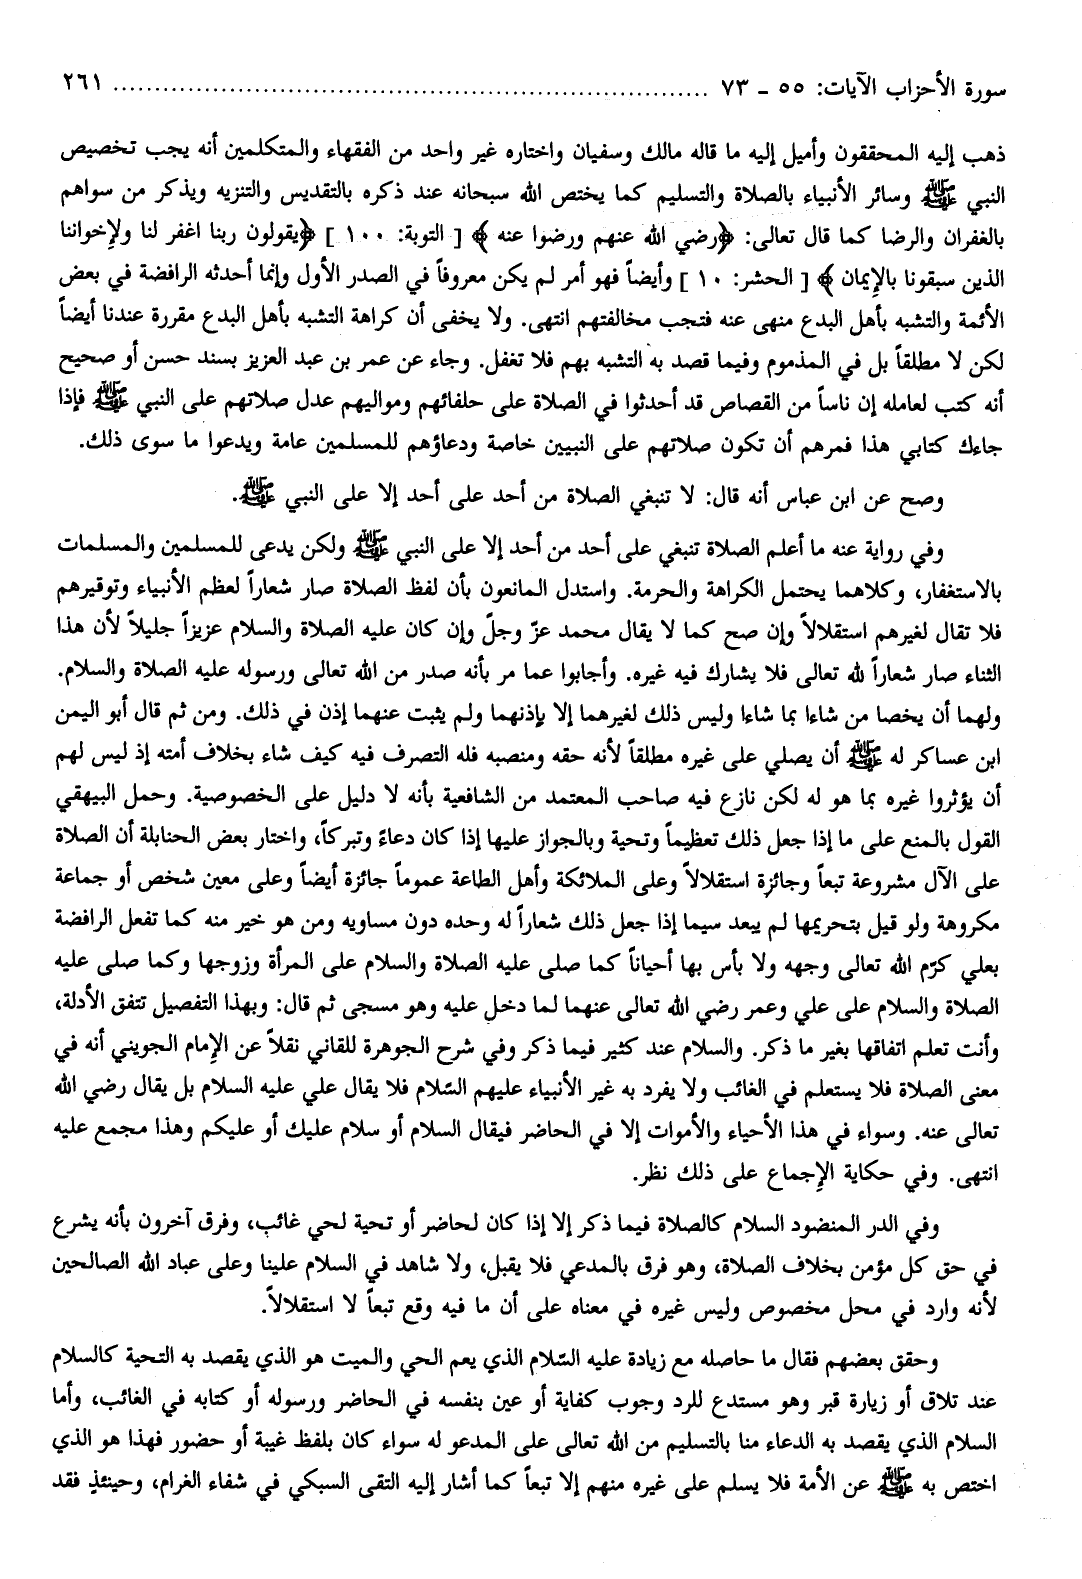 سورة الأحزاب الآيات: ٥٥ ـ ٧٣ ........................................................................ ٢٦١
ذهب إليه المحققون وأميل إليه ما قاله مالك وسفيان واختاره غير واحد من الفقهاء والمتكلمين أنه يجب تخصيص
النبي ﷺ وسائر الأنبياء بالصلاة والتسليم كما يختص الله سبحانه عند ذكره بالتقديس والتنزيه ويذكر من سواهم
بالغفران والرضا كما قال تعالى: ﴿رضي الله عنهم ورضوا عنه﴾ [ التوبة: ١٠٠ ] ﴿يقولون ربنا اغفر لنا ولإخواننا
الذين سبقونا بالإيمان﴾ [ الحشر: ١٠ ] وأيضاً فهو أمر لم يكن معروفاً في الصدر الأول وإنما أحدثه الرافضة في بعض
الأئمة والتشبه بأهل البدع منهى عنه فتجب مخالفتهم انتهى. ولا يخفى أن كراهة التشبه بأهل البدع مقررة عندنا أيضاً
لكن لا مطلقاً بل في المذموم وفيما قصد به التشبه بهم فلا تغفل. وجاء عن عمر بن عبد العزيز بسند حسن أو صحيح
أنه كتب لعامله إن ناساً من القصاص قد أحدثوا في الصلاة على حلفائهم ومواليهم عدل صلاتهم على النبي ﷺ فإذا
جاءك كتابي هذا فمرهم أن تكون صلاتهم على النبيين خاصة ودعاؤهم للمسلمين عامة ويدعوا ما سوى ذلك.
وصح عن ابن عباس أنه قال: لا تنبغي الصلاة من أحد على أحد إلا على النبي ﷺ.
وفي رواية عنه ما أعلم الصلاة تنبغي على أحد من أحد إلا على النبي ﷺ ولكن يدعى للمسلمين والمسلمات
بالاستغفار، وكلاهما يحتمل الكراهة والحرمة. واستدل المانعون بأن لفظ الصلاة صار شعاراً لعظم الأنبياء وتوقيرهم
فلا تقال لغيرهم استقلالاً وإن صح كما لا يقال محمد عزّ وجلّ وإن كان عليه الصلاة والسلام عزيزاً جليلاً لأن هذا
الثناء صار شعاراً لله تعالى فلا يشارك فيه غيره. وأجابوا عما مر بأنه صدر من الله تعالى ورسوله عليه الصلاة والسلام.
ولهما أن يخصا من شاءا بما شاءا وليس ذلك لغيرهما إلا بإذنهما ولم يثبت عنهما إذن في ذلك. ومن ثم قال أبو اليمن
ابن عساكر له ﷺ أن يصلي على غيره مطلقاً لأنه حقه ومنصبه فله التصرف فيه كيف شاء بخلاف أمته إذ ليس لهم
أن يؤثروا غيره بما هو له لكن نازع فيه صاحب المعتمد من الشافعية بأنه لا دليل على الخصوصية. وحمل البيهقي
القول بالمنع على ما إذا جعل ذلك تعظيماً وتحية وبالجواز عليها إذا كان دعاءً وتبركاً، واختار بعض الحنابلة أن الصلاة
على الآل مشروعة تبعاً وجائزة استقلالاً وعلى الملائكة وأهل الطاعة عموماً جائزة أيضاً وعلى معين شخص أو جماعة
مكروهة ولو قيل بتحريمها لم يبعد سيما إذا جعل ذلك شعاراً له وحده دون مساويه ومن هو خير منه كما تفعل الرافضة
بعلي كرّم الله تعالى وجهه ولا بأس بها أحياناً كما صلى عليه الصلاة والسلام على المرأة وزوجها وكما صلى عليه
الصلاة والسلام على علي وعمر رضي الله تعالى عنهما لما دخل عليه وهو مسجى ثم قال: وبهذا التفصيل تتفق الأدلة،
وأنت تعلم اتفاقها بغير ما ذكر. والسلام عند كثير فيما ذكر وفي شرح الجوهرة للقاني نقلاً عن الإمام الجويني أنه في
معنى الصلاة فلا يستعلم في الغائب ولا يفرد به غير الأنبياء عليهم السّلام فلا يقال علي عليه السلام بل يقال رضي الله
تعالى عنه. وسواء في هذا الأحياء والأموات إلا في الحاضر فيقال السلام أو سلام عليك أو عليكم وهذا مجمع عليه
انتهى. وفي حكاية الإجماع على ذلك نظر.
وفي الدر المنضود السلام كالصلاة فيما ذكر إلا إذا كان لحاضر أو تحية لحي غائب، وفرق آخرون بأنه يشرع
في حق كل مؤمن بخلاف الصلاة، وهو فرق بالمدعي فلا يقبل، ولا شاهد في السلام علينا وعلى عباد الله الصالحين
لأنه وارد في محل مخصوص وليس غيره في معناه على أن ما فيه وقع تبعاً لا استقلالاً.
وحقق بعضهم فقال ما حاصله مع زيادة عليه السّلام الذي يعم الحي والميت هو الذي يقصد به التحية كالسلام
عند تلاق أو زيارة قبر وهو مستدع للرد وجوب كفاية أو عين بنفسه في الحاضر ورسوله أو كتابه في الغائب، وأما
السلام الذي يقصد به الدعاء منا بالتسليم من الله تعالى على المدعو له سواء كان بلفظ غيبة أو حضور فهذا هو الذي
اختص به ﷺ عن الأمة فلا يسلم على غيره منهم إلا تبعاً كما أشار إليه التقى السبكي في شفاء الغرام، وحينئذٍ فقد